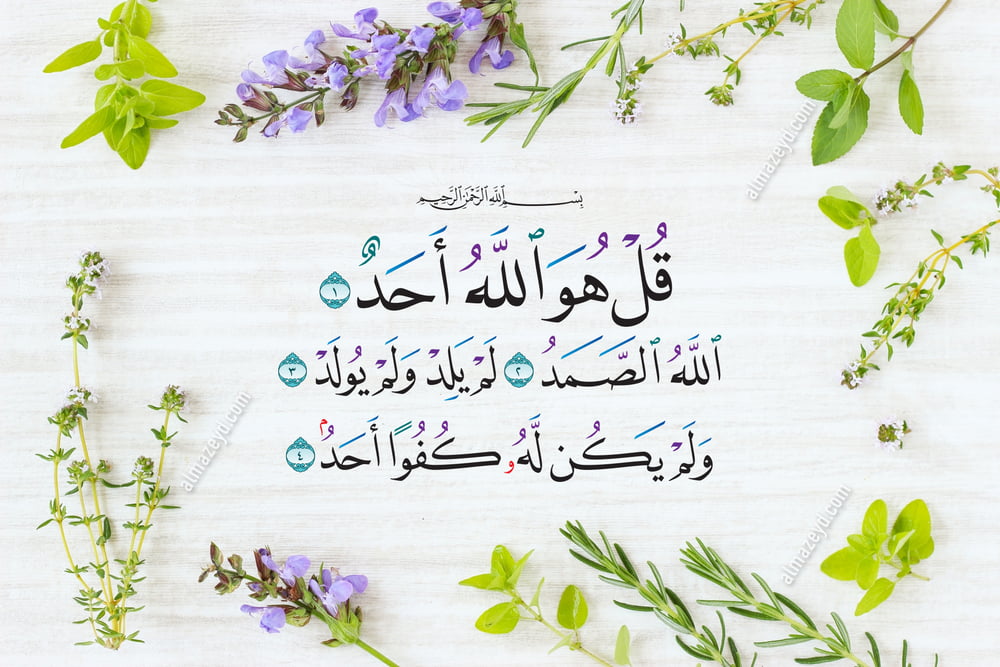 بِسْمِ اللَّهِ الرَّحْمَٰنِ الرَّحِيمِ
قُلْ هُوَ ٱللَّهُ أَحَدٌ ١
ٱللَّهُ ٱلصَّمَدُ ٢ لَمْ يَلِدْ وَلَمْ يُولَدْ ٣
وَلَمْ يَكُن لَّهُۥ كُفُوًا أَحَدٌۢ ٤
almazeyd.com
almazeyd.com
almazeyd.com